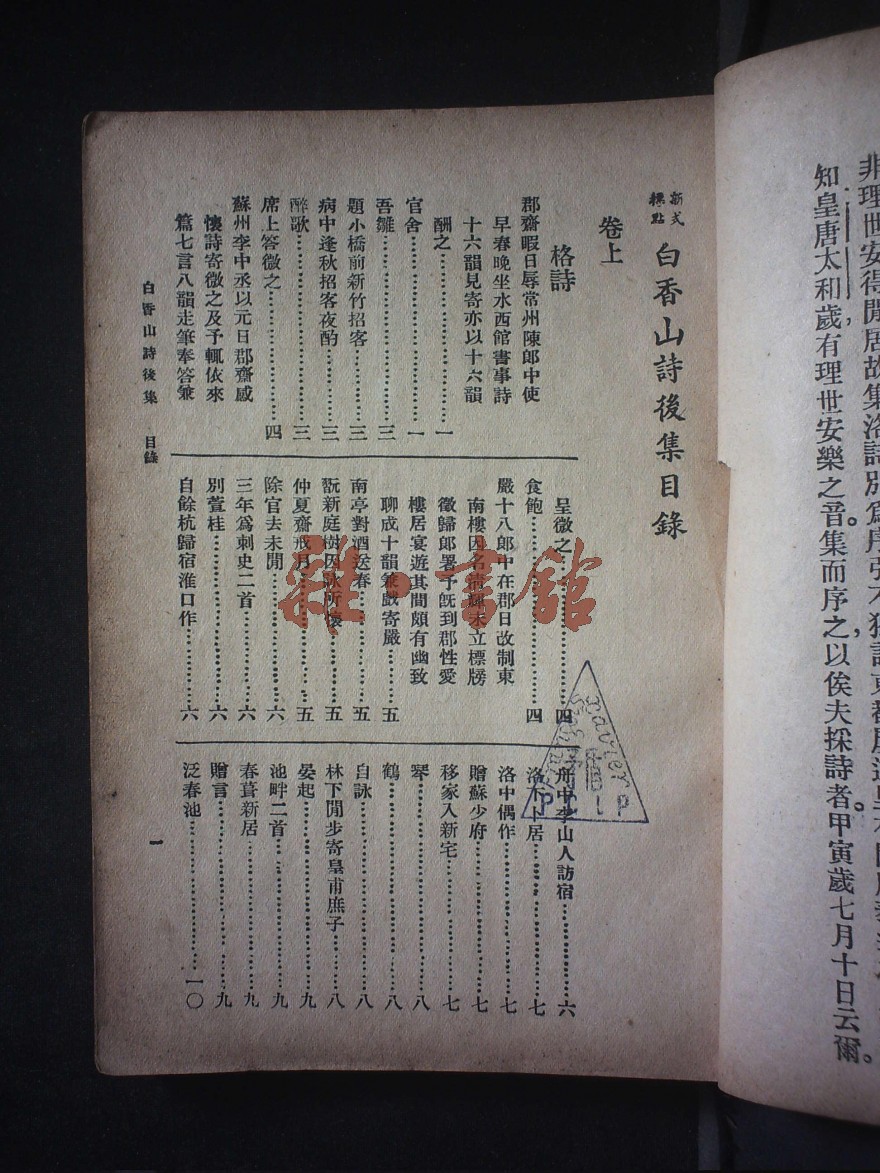 非理世安得閒居故集洛詩別爲序引不獨記東都履道里
知皇唐太和歲有理世安樂之音。集而序之，以俟夫採詩者。甲寅歲七月十日云爾。
新式
標點
白香山詩後集目錄
卷上
格詩
郡齋暇日辱常州陳郎中使
早春晚坐水西館書事詩
十六韻見寄亦以十六韻
酬之…………一
官舍…………一
吾雛…………三
題小橋前新竹招客…………三
病中逢秋招客夜酌…………三
醉歌…………三
席上答微之…………四
蘇州李中丞以元日郡齋感
懷詩寄微之及予輒依來
篇七言八韻走筆奉答兼
呈微之…………四
食飽…………四
嚴十八郎中在郡日改制東
南樓因名清輝未立標牓
徵歸郎署予旣到郡性愛
樓居宴遊其間頗有幽致
聊成十韻兼戲寄嚴…………五
南亭對酒送春…………五
翫新庭樹因詠所懷…………五
仲夏齋戒月…………五
除官去未間…………六
三年爲刺史二首…………六
別萱桂…………六
自餘杭歸宿淮口作…………六
舟中李山人訪宿…………六
洛下卜居…………七
洛中偶作…………七
贈蘇少府…………七
移家入新宅…………七
琴…………八
鶴…………八
自詠…………八
林下閒步寄皇甫庶子…………八
晏起…………九
池畔二首…………九
春葺新居…………九
贈言…………九
泛春池…………一〇
白香山詩後集 目錄
一
雜·書館
Xavier
P